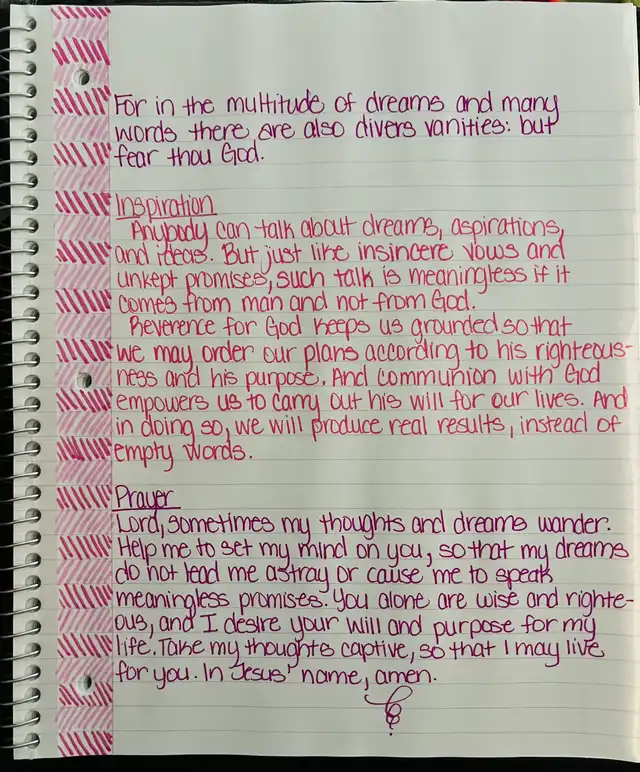 For in the multitude of dreams and many
words there are also divers vanities: but
fear thou God.
Inspiration
Anybody can talk about dreams, aspirations,
and ideas. But just like insincere vows and
unkept promises, such talk is meaningless if it
comes from man and not from God.
Reverence for God keeps us grounded so that
we may order our plans according to his righteous-
ness and his purpose. And communion with God
empowers us to carry out his will for our lives. And
in doing so, we will produce real results, instead of
empty words.
Prayer
Lord, sometimes my thoughts and dreams wander.
Help me to set my mind on you, so that my dreams
do not lead me astray or cause me to speak
meaningless promises. You alone are wise and righte-
ous, and I desire your will and purpose for my
life. Take my thoughts captive, so that I may live
for you. In Jesus' name, amen.